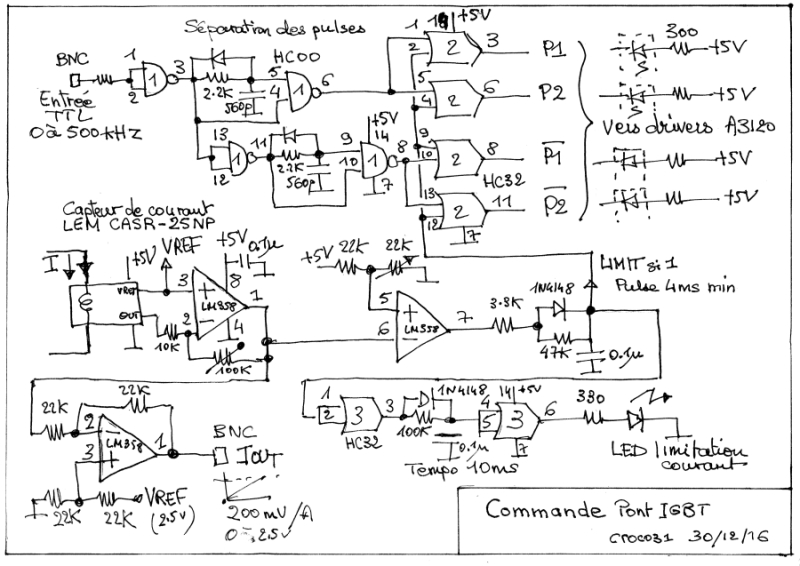 Séparation des pulses
BNC
1
2
1
3
HC00
2.2K
560p
5
4
1
6
Entrée
TTL
0 à 500kHZ
13
12
1
11
2.2K
560p
9
10
+5V
14
1
8
7
1
2
+5V
2
3
P1
5
4
2
6
P2
9
10
2
8
P1
HC32
13
12
2
11
P2
7
300
+5V
+5V
Vers drivers A3120
+5V
+5V
Capteur de courant
LEM CASR-25NP
I
+5V
VREF
VREF
OUT
+5V
0.1µ
3
8
2
LM358
1
4
10K
100K
+5V
22K
22K
5
6
LM358
7
3.3K
1N4148
47K
0.1µ
LIMIT si 1
Pulse 4ms min
22K
22K
2
3
LM358
1
BNC
IOUT
22K
22K
VREF
(2.5V)
200mV/A
1
2
3
3
HC32
1N4148
100K
0.1µ
Tempo 10ms
4
5
14
+5V
3
6
7
330
LED limitation
courant
Commande Pont IGBT
croco31 30/12/16